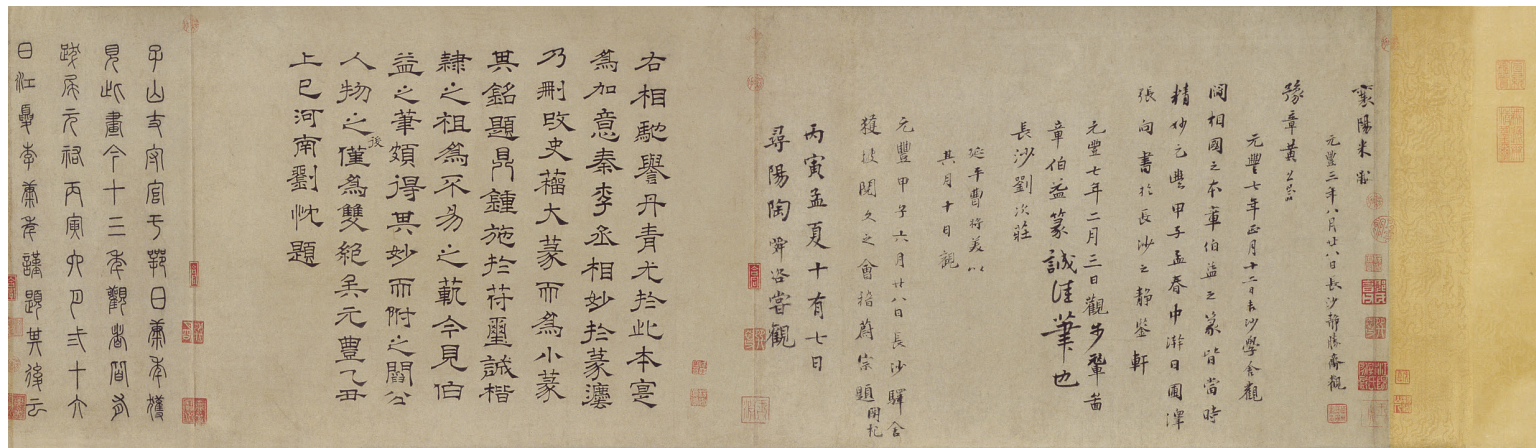 襄陽米黻
元豐三年八月廿八日長沙靜勝齋觀
豫章黃公器
元豐七年正月十二日長沙學舍觀
閻相國之本章伯益之篆皆當時
精妙元豐甲子孟春中澣日圃澤
張向書於長沙之靜鑒軒
元豐七年二月三日觀步輦圖
章伯益篆誠佳筆也
長沙劉次莊
延平曹將美以
其月十日觀
元豐甲子六月廿八日長沙驛舍
獲披閱久之會稽蔚宗題同
丙寅孟夏十有七日
尋陽陶舜咨嘗觀
右相馳譽丹青尤於此本寔
為加意秦李丞相妙於篆灋
乃刪改史籀大篆而為小篆
其銘題鼎鐘施於苻璽誠楷
隸之祖為不易之範今見伯
益之筆頗得其妙而附之閻公
人物之後僅為雙絕矣元豊乙丑
上巳河南劉忱題
子山支守官于鄂日廉孝獲
見此畫今十三年觀者間有
跋尾元祐丙寅六月弍十六
日江夏李廉孝謹題其後云